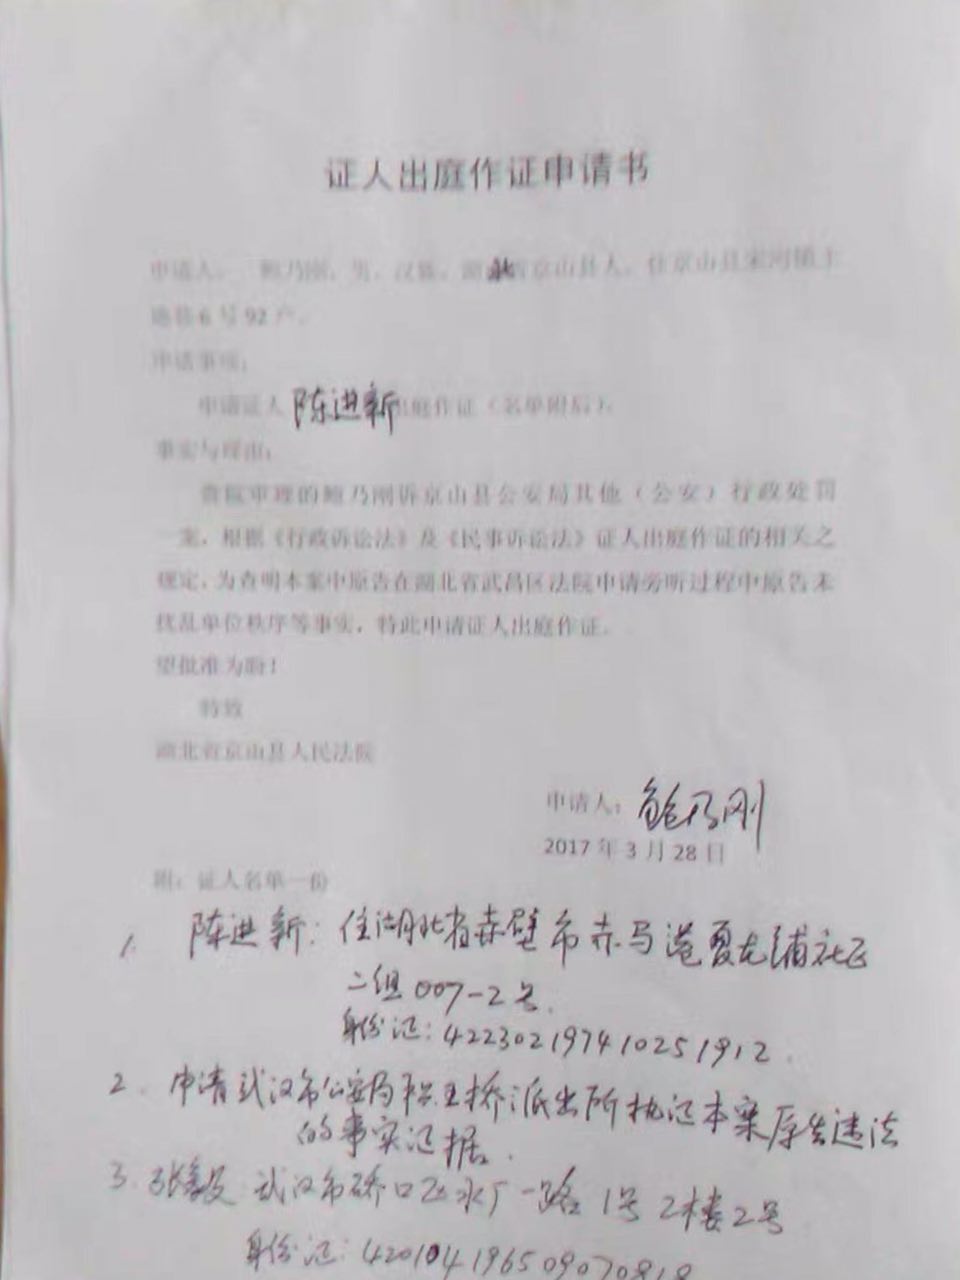 证人出庭作证申请书
申请人： 鲍乃刚，男，汉族，湖北省京山县人，住京山县宋河镇
6号92户。
申请事项：
申请证人陈进新出庭作证（名单附后）。
事实与理由：
贵院审理的鲍乃刚诉京山县公安局其他（公安）行政处罚
一案，根据《行政诉讼法》及《民事诉讼法》证人出庭作证的相关之
规定，为查明本案中原告在湖北省武昌区法院申请旁听过程中原告未
扰乱单位秩序等事实，特此申请证人出庭作证。
望批准为盼！
特致
湖北省京山县人民法院
申请人：鲍乃刚
2017年3月28日
附：证人名单一份
1. 陈进新：住湖北省赤壁市赤马港夏龙铺社区
二组007-2号.
身份证：422302197410251912.
2. 申请武汉市公安局 桥派出所执 本案原告违法
的事实证据.
3. 张毅 武汉市硚口区水厂一路1号2楼2号
身份证：420104196509070818